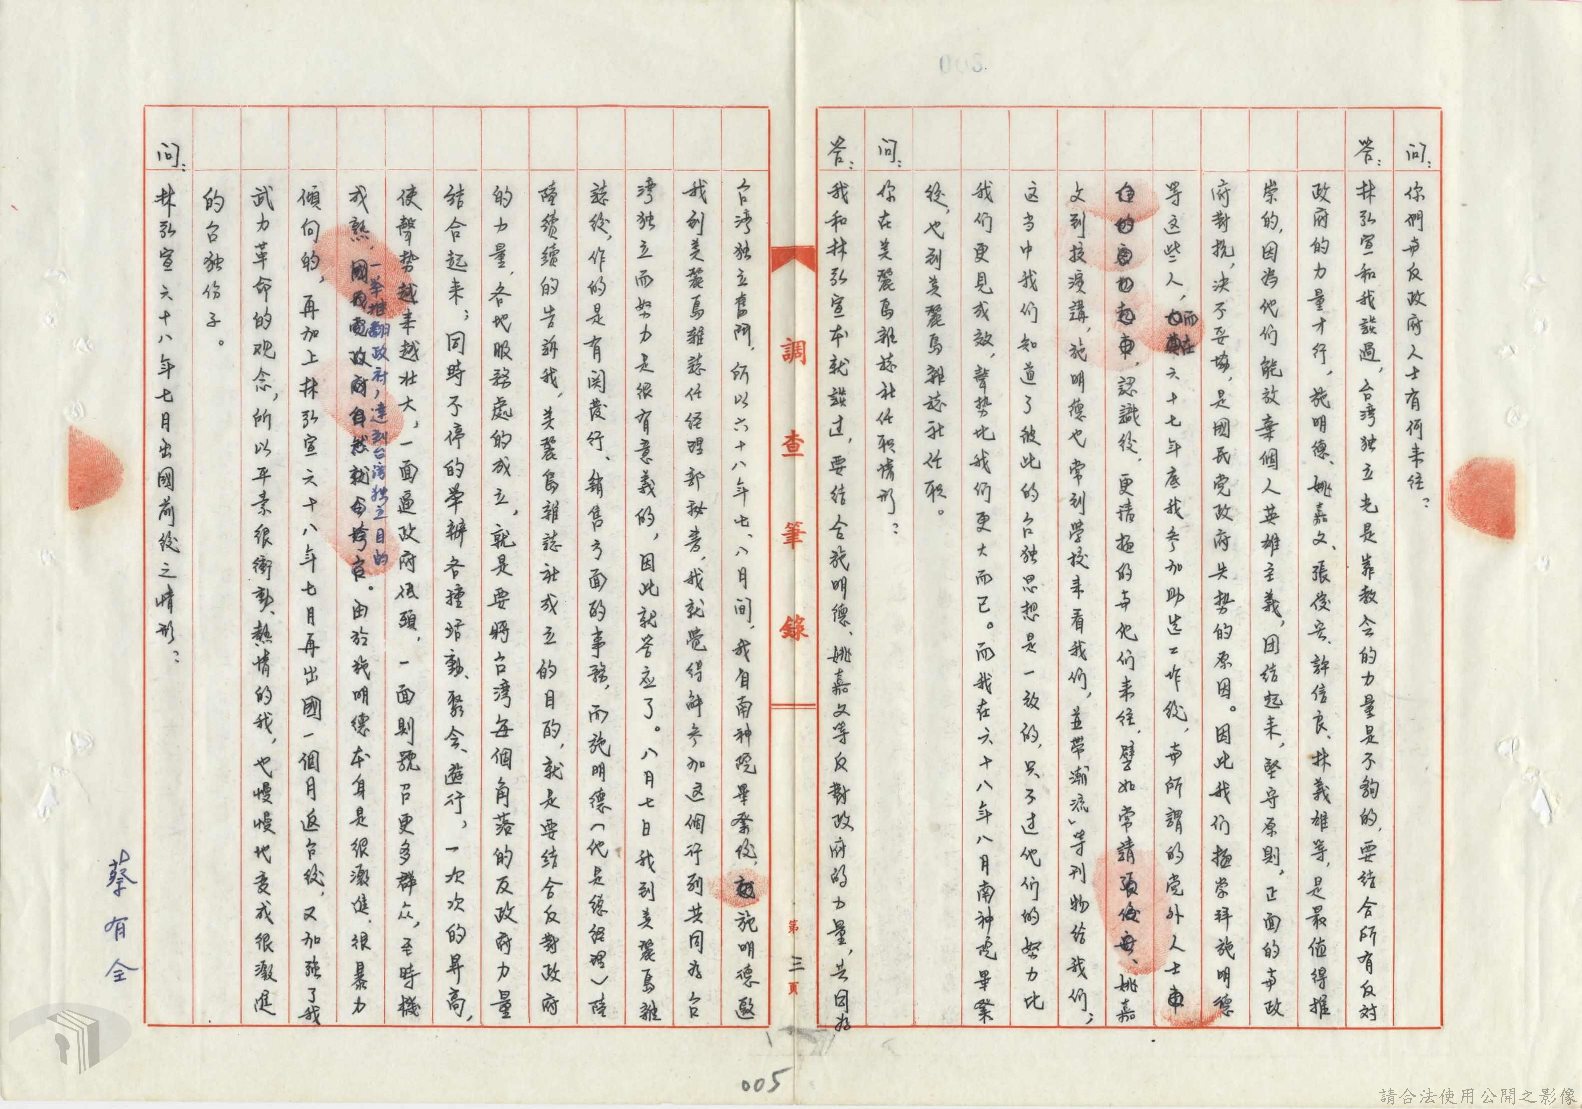 問：你們与反政府人士有何来往？
答：林弘宣和我談過，台湾独立光是靠教会的力量是不夠的，要结合所有反対
政府的力量才行，施明德、姚嘉文、張俊宏、許信良、林義雄等，是最值得推
崇的，因為他们能放棄個人英雄主義，团结起来，堅守原則，正面的与政
府對抗，决不妥協，是國民党政府失势的原因。因此我们極崇拜施明德
等这些人，而在六十七年底我参加助选工作後，与所謂的党外人士
認識後，更積極的与他们来往，譬如常請姚嘉
文到校演講，施明德也常到学校来看我们，並带「潮流」等刊物给我们；
这当中我们知道了彼此的台独思想是一致的，只不过他们的努力比
我们更見成效，聲势比我们更大而已。而我在六十八年八月南神院畢業
後，也到美麗島雜誌社任职。
問：你在美麗島雜誌社任职情形？
答：我和林弘宣本就談过，要结合施明德、姚嘉文等反對政府的力量，共同為
調查筆錄
第三頁
台湾独立奮鬥，所以六十八年七、八月间，我自南神院畢業後，施明德邀
我到美麗島雜誌任经理部秘書，我就覺得能参加这個行列共同為台
湾独立而努力是很有意義的，因此就答应了。八月七日我到美麗島雜
誌後，作的是有関發行、銷售方面的事務，而施明德（他是總经理）陸
陸續續的告訴我，美麗島雜誌社成立的目的，就是要结合反對政府
的力量，各地服務處的成立，就是要將台湾每個角落的反政府力量
结合起来；同時不停的举辦各種活動、聚会、遊行，一次次的昇高，
使聲势越来越壮大，一面逼政府低頭，一面則號召更多群众，至時機
成熟，一举推翻政府，達到台湾独立目的。由於施明德本身是很激進、很暴力
傾向的，再加上林弘宣六十八年七月再出國一個月返台後，又加強了我
武力革命的观念，所以平素很衝動、熱情的我，也慢慢地变成很激進
的台独份子。
問：林弘宣六十八年七月出國前後之情形？
蔡有全
005
請合法使用公開之影像